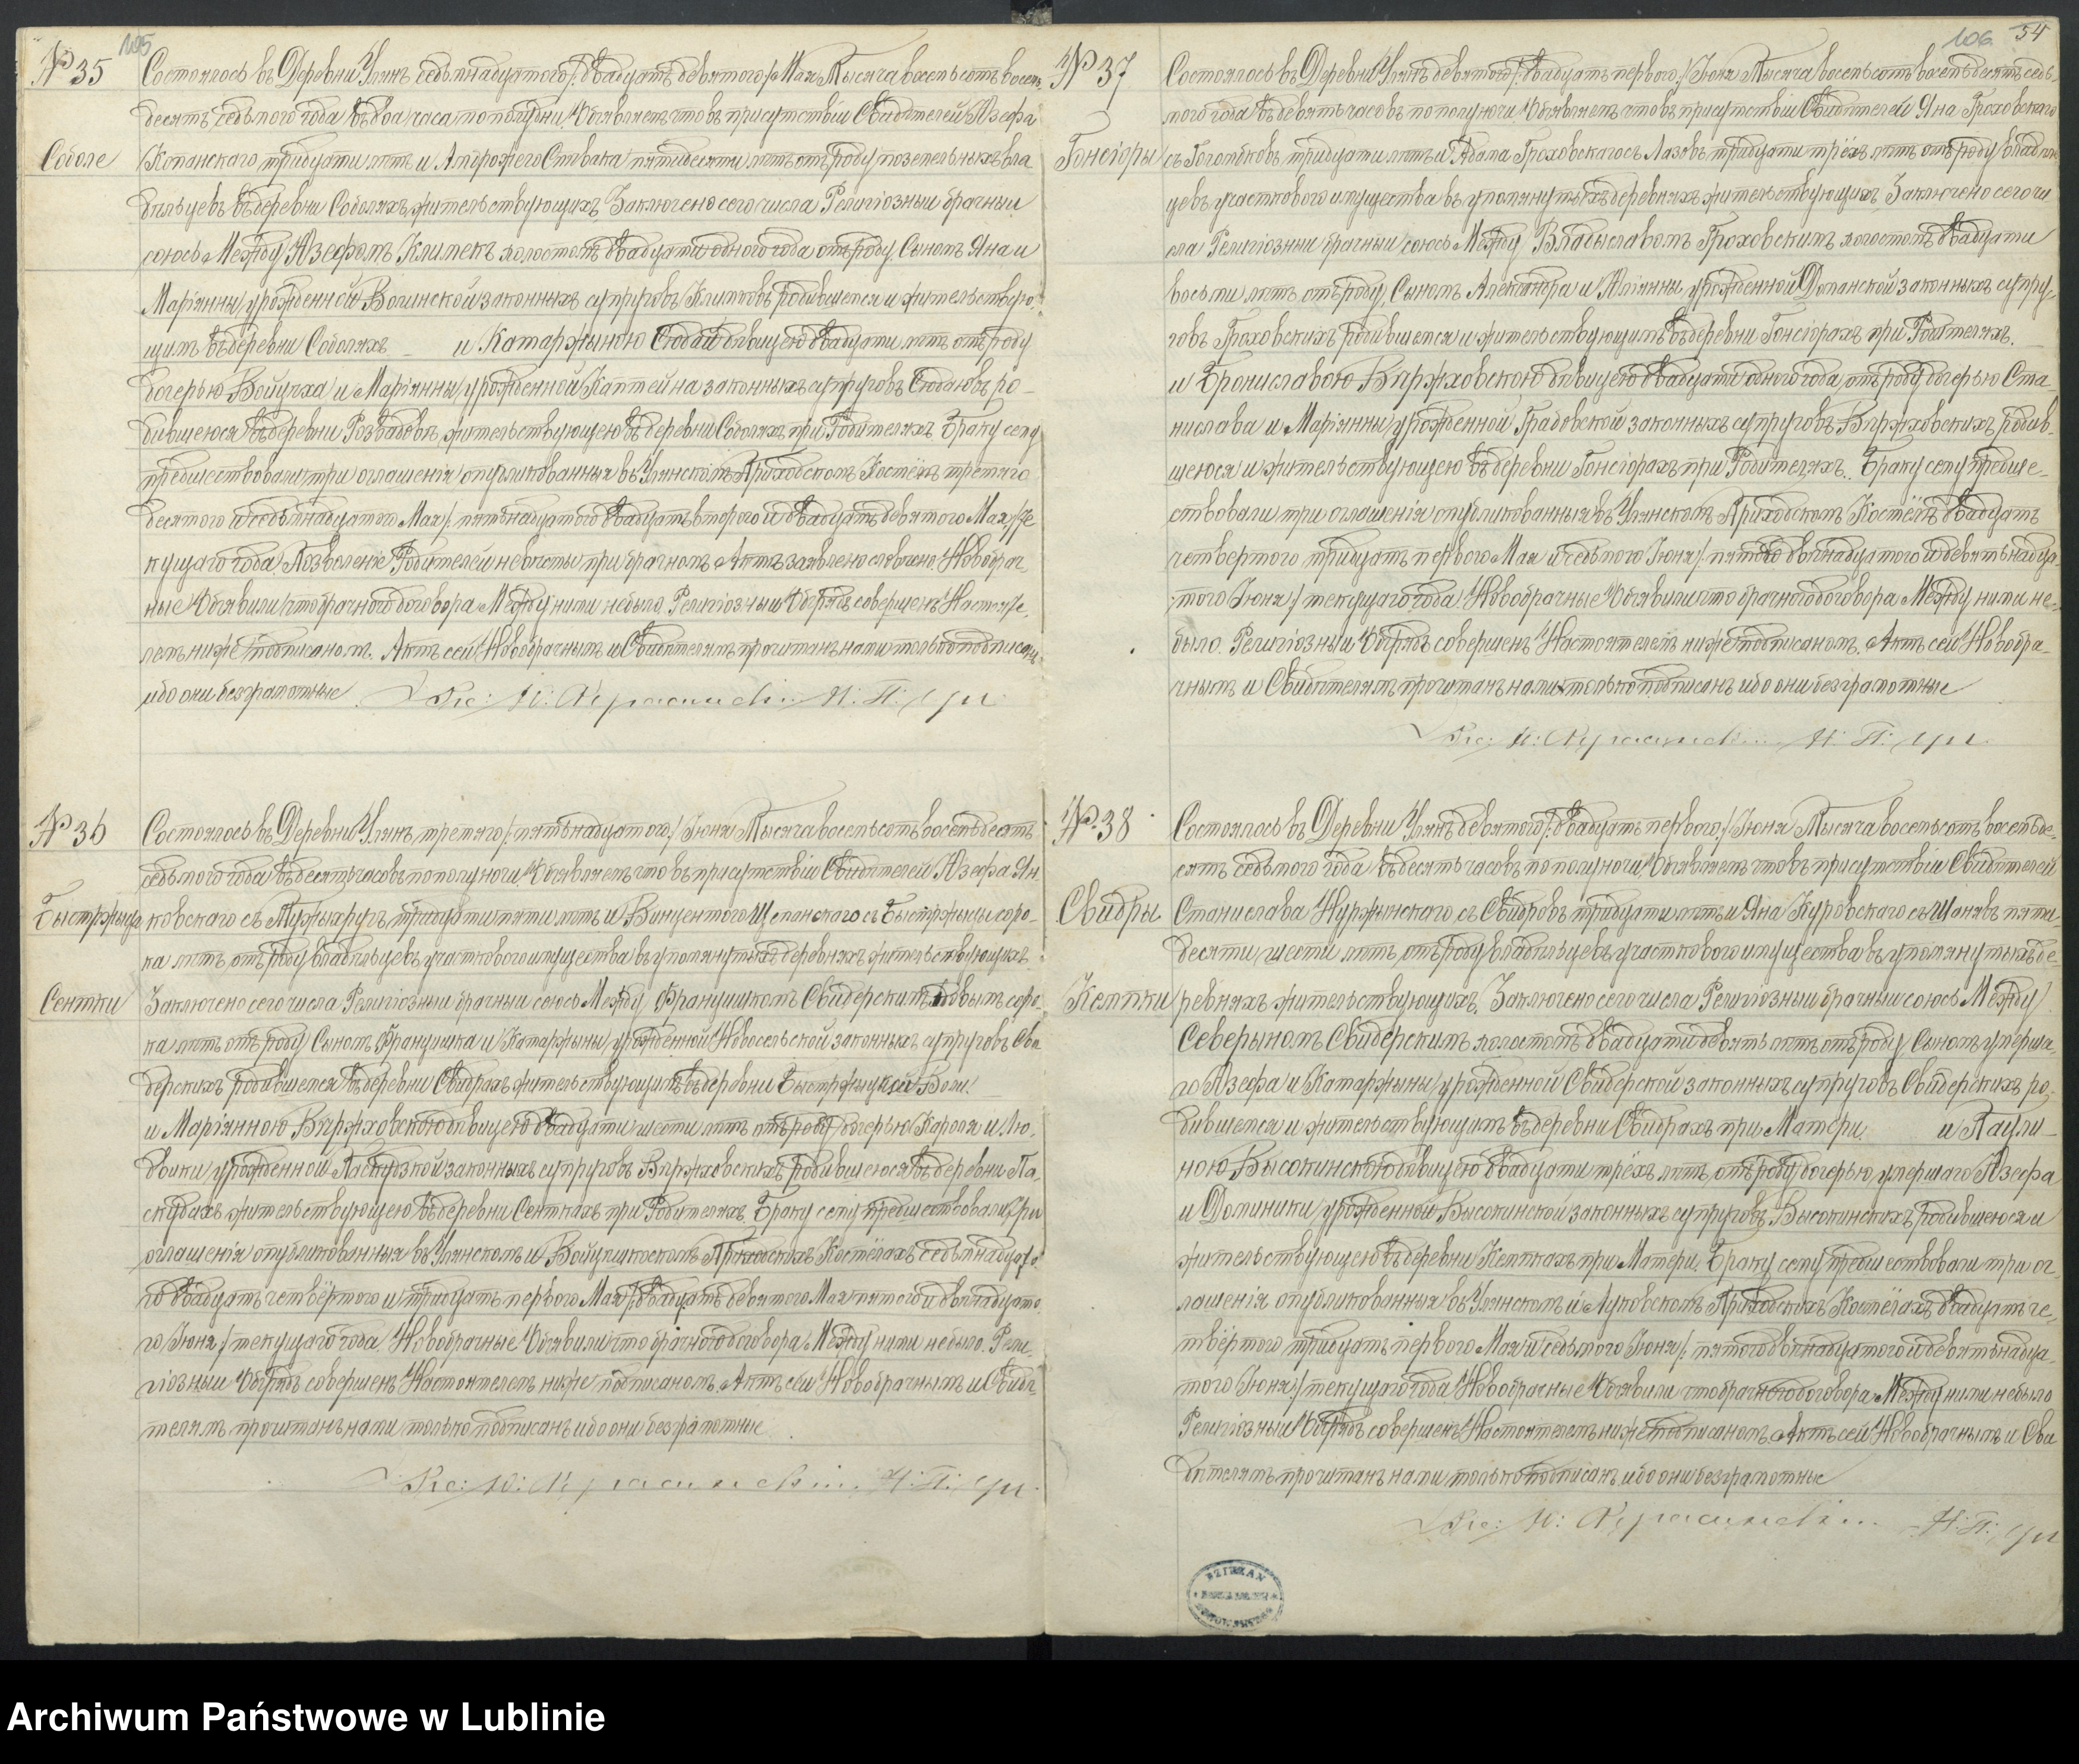 105
№ 35
Соболе
Состоялось въ Деревни Улянъ седьмнадцатого /: двадцать девятого :/ Мая Тысяча восемьсотъ восемь-
десятъ седьмого года въ два часа по полудни. Объявляемъ что въ присутствіи Свидѣтелей Юзефа
Копанскаго тридцати лѣтъ и Амброжего Спѣвака пятидесяти лѣтъ отъ роду поземельныхъ вла-
дѣльцевъ въ деревни Соболяхъ жительствующихъ Заключено сего числа Религіозный брачный
союсъ Между Юзефомъ Климекъ холостомъ двадцати одного года отъ роду Сыномъ Яна и
Маріянны урожденной Вогинской законныхъ супруговъ Климковъ родившемся и жительствую-
щимъ въ деревни Соболяхъ и Катаржыною Сюдай дѣвицею двадцати лѣтъ отъ роду
дочерью Войцѣха и Маріянны урожденной Каптей на законныхъ супруговъ Сюдаювъ ро-
дившеюся въ деревни Розвадовкѣ жительствующею въ деревни Соболяхъ при Родителяхъ. Браку сему
предшествовали три оглашенія опубликованныя въ Улянскомъ Приходскомъ Костёлѣ третяго
десятого и седьмнадцатого Мая /: пятьнадцатого двадцать второго и двадцать девятого Мая :/ Те-
кущаго года. Позволеніе Родителей невѣсты при брачномъ Актѣ заявлено словесно. Новобрач-
ные Объявили что брачного договора Между ними небыло. Религіозный Обрядъ совершенъ Настояте-
лемъ ниже подписаномъ. Актъ сей Новобрачнымъ и Свидѣтелямъ прочитанъ нами только подписанъ
ибо они безграмотные
Н: П:
№ 36
Быстржыца
Сентки
Состоялось въ Деревни Улянъ, третяго /: пятьнадцатого :/ Іюня Тысяча восемьсотъ восемьдесятъ
седьмого года въ десять часовъ по полуночи. Объявляемъ что въ присутствіи Свидѣтелей Юзефа Ян-
ковскаго съ тридцати пяти лѣтъ и Винцентого Щепанскаго съ Быстржыцы соро-
ка лѣтъ отъ роду владѣльцевъ участкового имущества въ упомянутыхъ деревняхъ жительствующихъ.
Заключено сего числа Религіозный брачный союсъ Между Францишкомъ Свидерскимъ вдовымъ соро-
ка лѣтъ отъ роду Сыномъ Францишка и Катаржыны урожденной Новосельской законныхъ супруговъ Сви-
дерскихъ родившемся въ деревни Свидрахъ жительствующимъ въ деревни Быстржыцкой Воли.
и Маріянною Вѣржховскою дѣвицею двадцати шести лѣтъ отъ роду дочерью Кароля и Лю-
двики урожденной Паскудзкой законныхъ супруговъ Вѣржховскихъ родившеюся въ деревни Па-
скудахъ жительствующею въ деревни Сенткахъ при Родителяхъ. Браку сему предшествовали три
оглашенія опубликованныя въ Улянскомъ и Войцешковскомъ Приходскихъ Костёлахъ седьмнадцато-
го двадцать четвёртого и тридцать первого Мая /: двадцать девятого Мая пятого и двѣнадцато-
го Іюня :/ текущаго года. Новобрачные Объявили что брачного договора Между ними небыло. Рели-
гіозный Обрядъ совершенъ Настоятелемъ ниже подписаномъ. Актъ сей Новобрачнымъ и Свидѣ-
телямъ прочитанъ нами только подписанъ ибо они безграмотные
Н: П:
106 54
№ 37
Гонсіоры
Состоялось въ Деревни Улянъ девятого /: двадцать первого :/ Іюня Тысяча восемьсотъ восемьдесятъ седь-
мого года въ девять часовъ по полуночи. Объявляемъ что въ присутствіи Свидѣтелей Яна Гроховскаго
съ тридцати лѣтъ и Адама Гроховскагосъ Лазовъ тридцати трёхъ лѣтъ отъ роду владѣль-
цевъ участкового имущества въ упомянутыхъ деревняхъ жительствующихъ. Заключено сего чи-
сла Религіозный брачный союсъ Между Владыславомъ Гроховскимъ холостомъ двадцати
восьми лѣтъ отъ роду Сыномъ Александра и Юліянны урожденной Доманской законныхъ супру-
говъ Гроховскихъ родившемся и жительствующимъ въ деревни Гонсіорахъ при Родителяхъ.
и Брониславою Вѣржховскою дѣвицею двадцати одного года отъ роду дочерью Ста-
нислава и Маріянны урожденной Градовской законныхъ супруговъ Вѣржховскихъ родив-
шеюся и жительствующею въ деревни Гонсіорахъ при Родителяхъ. Браку сему предше-
ствовали три оглашенія опубликованныя въ Улянскомъ Приходскомъ Костёлѣ двадцать
четвертого тридцать первого Мая и седьмого Іюня /: пятого двѣнадцатого и девятьнадца-
того Іюня :/ текущаго года. Новобрачные Объявили что брачного договора Между ними не-
было. Религіозный Обрядъ совершенъ Настоятелемъ ниже подписаномъ. Актъ сей Новобра-
чнымъ и Свидѣтелямъ прочитанъ нами только подписанъ ибо они безграмотные
Н: П:
№ 38
Свидры
Кемпки
Состоялось въ Деревни Улянъ девятого /: двадцать первого :/ Іюня Тысяча восемьсотъ восемьде-
сятъ седьмого года въ десять часовъ по полуночи. Объявляемъ что въ присутствіи Свидѣтелей
Станислава Нуржынского съ Свидровъ тридцати лѣтъ и Яна Куровскаго съ пяти-
десяти шести лѣтъ, отъ роду владѣльцевъ участкового имущества въ упомянутыхъ де-
ревняхъ жительствующихъ. Заключено сего числа Религіозный брачный союсъ Между
Северыномъ Свидерскимъ холостомъ двадцати девять лѣтъ отъ роду Сыномъ умерша-
го Юзефа и Катаржыны урожденной Свидерской законныхъ супруговъ Свидерскихъ ро-
дившемся и жительствующимъ въ деревни Свидрахъ при Матери. и Паули-
ною Высокинскою дѣвицею двадцати трёхъ лѣтъ, отъ роду дочерью умершаго Юзефа
и Доминики урожденной Высокинской законныхъ супруговъ Высокинскихъ родившеюся и
жительствующею въ деревни Кемпкахъ при Матери. Браку сему предшествовали три ог-
лашенія опубликованныя въ Улянскомъ и Луковскомъ Приходскихъ Костёлахъ двадцать че-
твёртого тридцать первого Мая и седьмого Іюня /: пятого двѣнадцатого и девятьнадца-
того Іюня :/ текущаго года. Новобрачные Объявили что брачного договора Между ними небыло
Религіозный Обрядъ совершенъ Настоятелемъ ниже подписаномъ. Актъ сей Новобрачнымъ и Сви-
дѣтелямъ прочитанъ нами только подписанъ ибо они безграмотные
Н: П:
Archiwum Państwowe w Lublinie